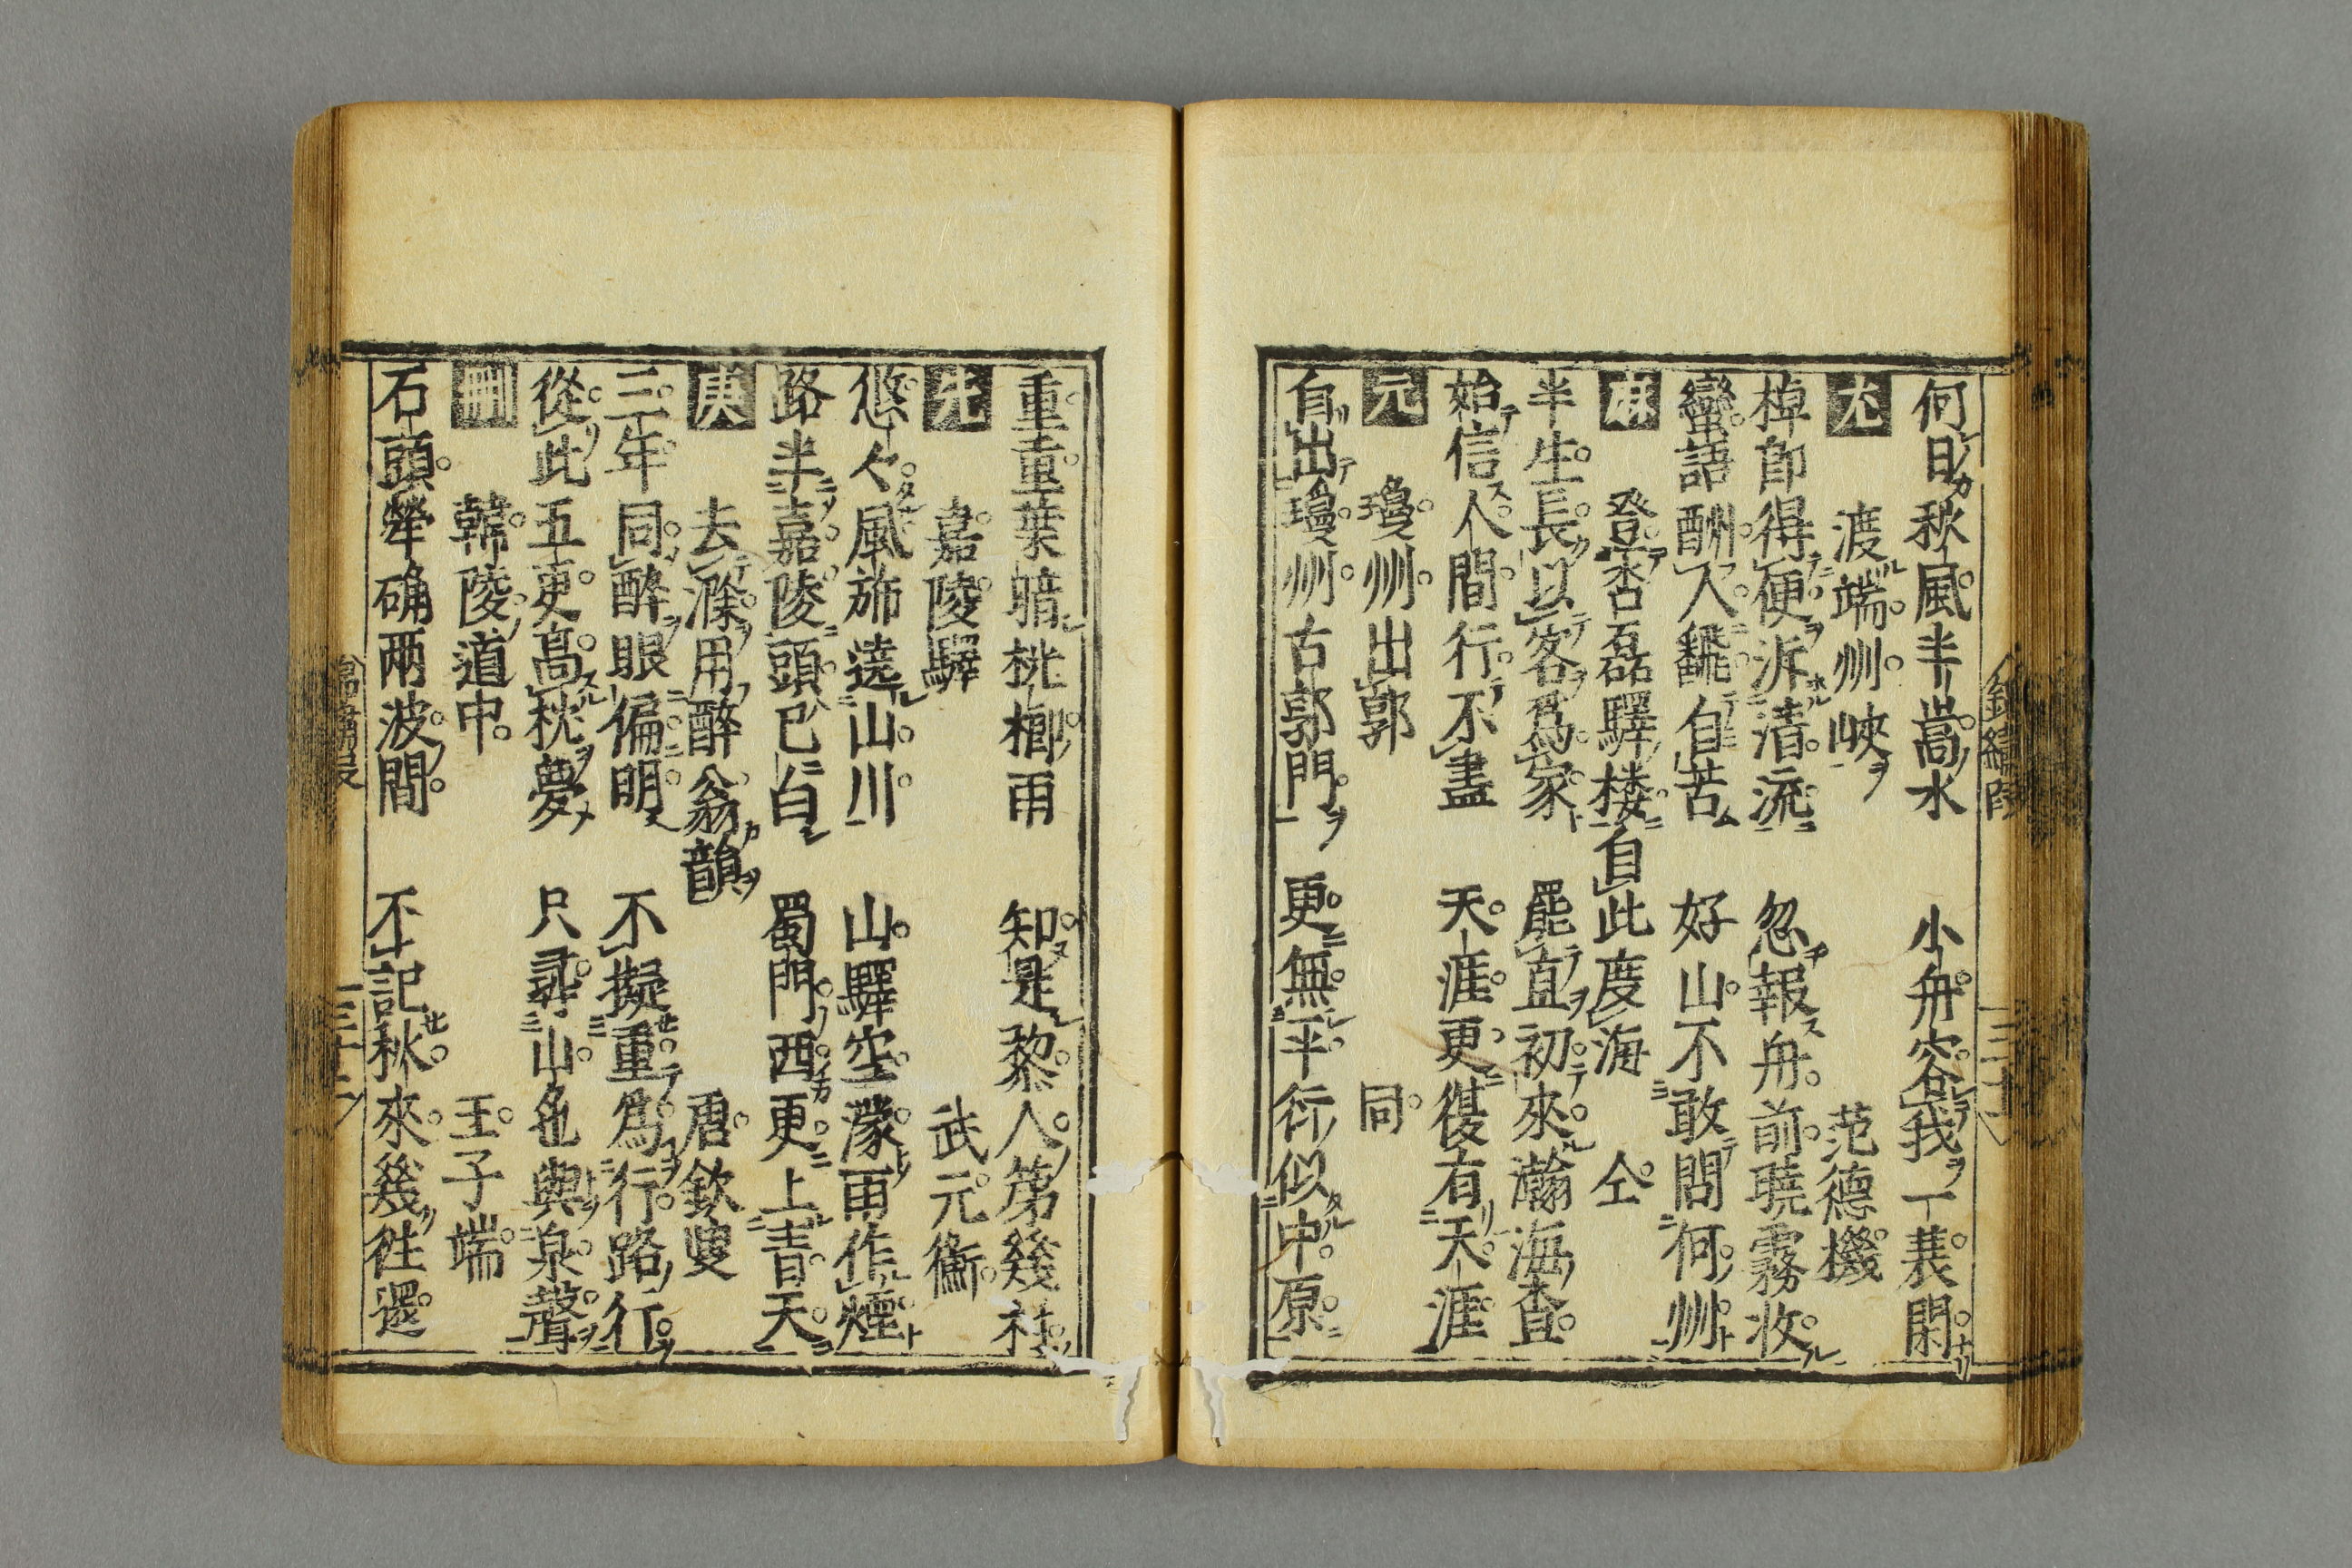 何日秋風半蒿水　小舟容我一蓑閑
尤　渡端州峽　范德機
棹郎得便泝清流　忽報舟前曉霧收
蠻語酬人飜自苦　好山不敢問何州
麻　登杏磊驛楼自此度海　仝
半生長以客爲家　罷直初來瀚海查
始信人間行不盡　天涯更復有天涯
元　瓊州出郭　同
自出瓊州古郭門　更無平行似中原
重重葉暗桄榔雨　知是黎人第幾村
先　嘉陵驛　武元衡
悠々風旆遶山川　山驛空濛雨作煙
路半嘉陵頭已白　蜀門西更上青天
庚　去滁用醉翁韻　唐欽叟
三年同醉眼偏明　不擬重爲行路行
從此五更高枕夢　只尋山色與泉聲
刪　韓陵道中　王子端
石頭犖确兩波間　不記秋來幾往還